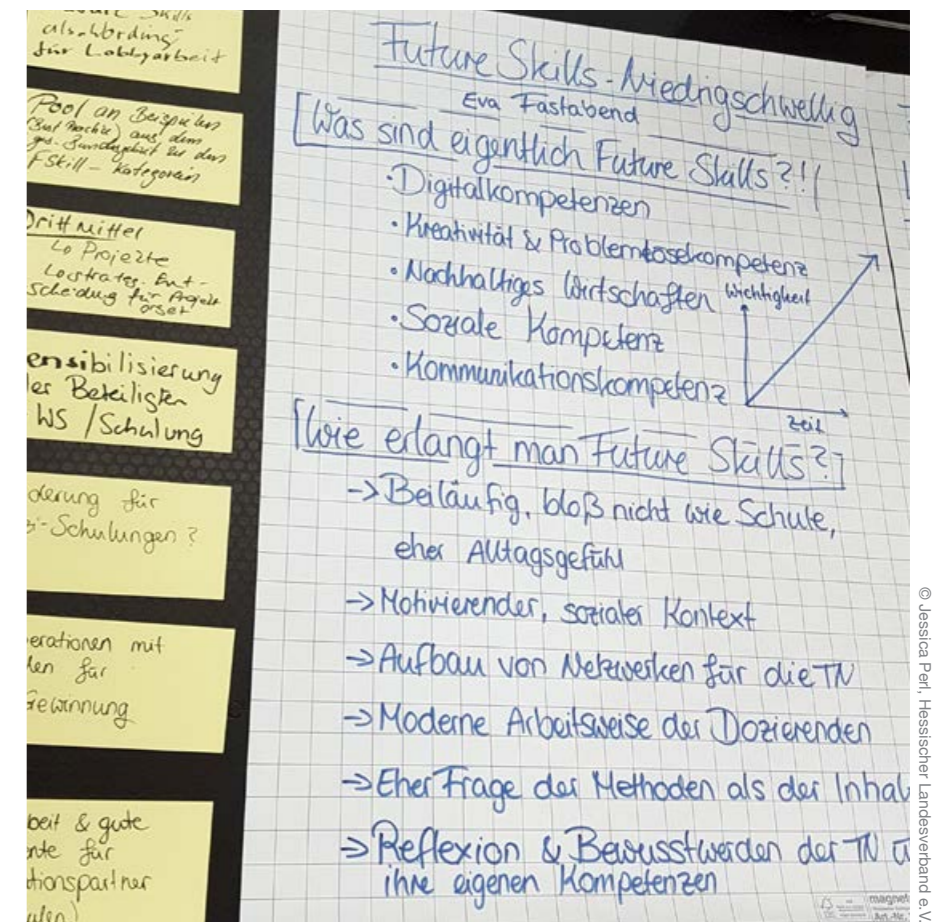 als Wording
für Lobbyarbeit
Pool an Beispielen
(Best Practice) aus dem
ges. Bundesgebiet zu den
FSkill - Kategorien
Drittmittel
Projekte
scheidung für
ensibilisierung
der Beteiligten
WS / Schulung
derung für
-Schulungen?
erationen mit
den für
Gewinnung
beit & gute
nte für
tionspartner
ulen)
Future Skills - Niedrigschwellig
Eva Fastabend
[Was sind eigentlich Future Skills?!
·Digitalkompetenzen
·Kreativität & Problemlösekompetenz
·Nachhaltiges Wirtschaften
·Soziale Kompetenz
·Kommunikationskompetenz
Wichtigkeit
Zeit
[Wie erlangt man Future Skills?]
->Beiläufig, bloß nicht wie Schule,
eher Alltagsgefühl
->Motivierender, sozialer Kontext
->Aufbau von Netzwerken für die TN
->Moderne Arbeitsweise der Dozierenden
->Eher Frage der Methoden als der Inhal
->Reflexion & Bewusstwerden der TN ü
ihre eigenen Kompetenzen
© Jessica Perl, Hessischer Landesverband e.V.